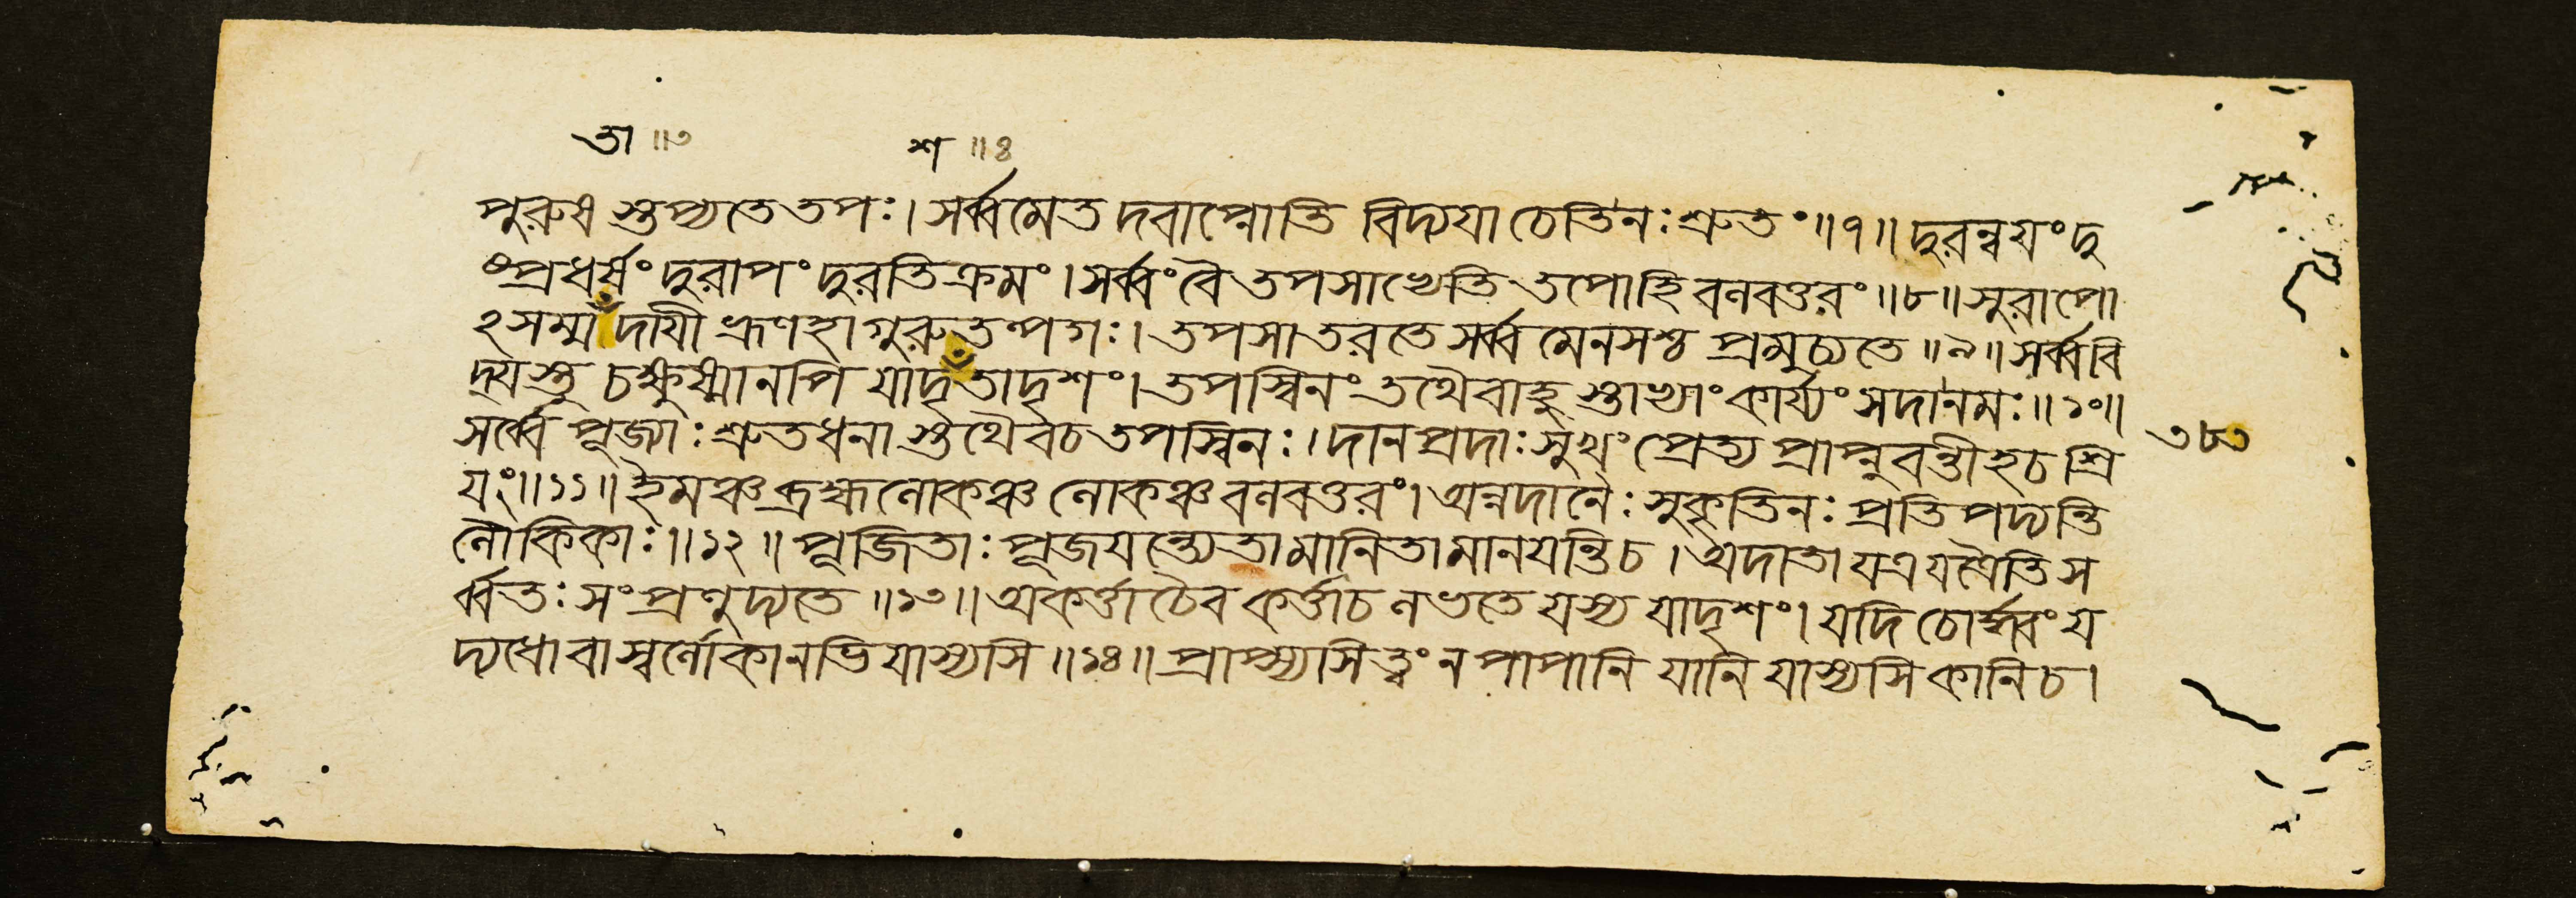 তা ॥৩ শ ॥৪
পুরুষ স্তুপ্যতে তপঃ। সর্ব্বমেত দবাপ্নোতি বিদ্যযা চেতিনঃ শ্রুতং॥৭॥ দুরন্বযং দু
ষ্প্রধর্ষং দুরাপং দুরতিক্রমং। সর্ব্বং বৈ তপসাখেতি তপোহি বলবত্তরং॥৮॥ সুরাপো
ঽসম্মাদাযী ভ্রূণহা গুরুতল্পগঃ। তপসা তরতে সর্ব্বমেনসশ্চ প্রমুচ্যতে॥৯॥ সর্ব্ববি
দ্যস্তু চক্ষুষ্মানপি যাদৃতাদৃশং। তপস্বিনং তথৈবাহু স্তাখ্যাং কার্য্যং সদানমঃ॥১০॥
সর্ব্বে পূজ্যাঃ শ্রুতধনা স্তথৈবচ তপস্বিনঃ। দানপ্রদাঃ সুখং প্রেত্য প্রাপ্নুবন্তীহচ শ্রি
যং॥১১॥ ইমঞ্চ ব্রহ্মলোকঞ্চ লোকঞ্চ বলবত্তরং। অন্নদানৈঃ সুকৃতিনঃ প্রতিপদ্যন্তি
লৌকিকাঃ॥১২॥ পূজিতাঃ পূজযন্ত্যেতা মানিতা মানযন্তি চ। অদাতা যত্র যত্রৈতি স
র্ব্বতঃ সংপ্রণুদ্যতে॥১৩॥ অকর্ত্তা চৈব কর্ত্তাচ লভতে যস্য যাদৃশং। যদি চোর্দ্ধ্বং য
দ্যধোবা স্বর্লোকানভিযাস্যসি॥১৪॥ প্রাপ্স্যসি ত্বং ন পাপানি যানি যাস্যসি কানি চ।
৩৮৩